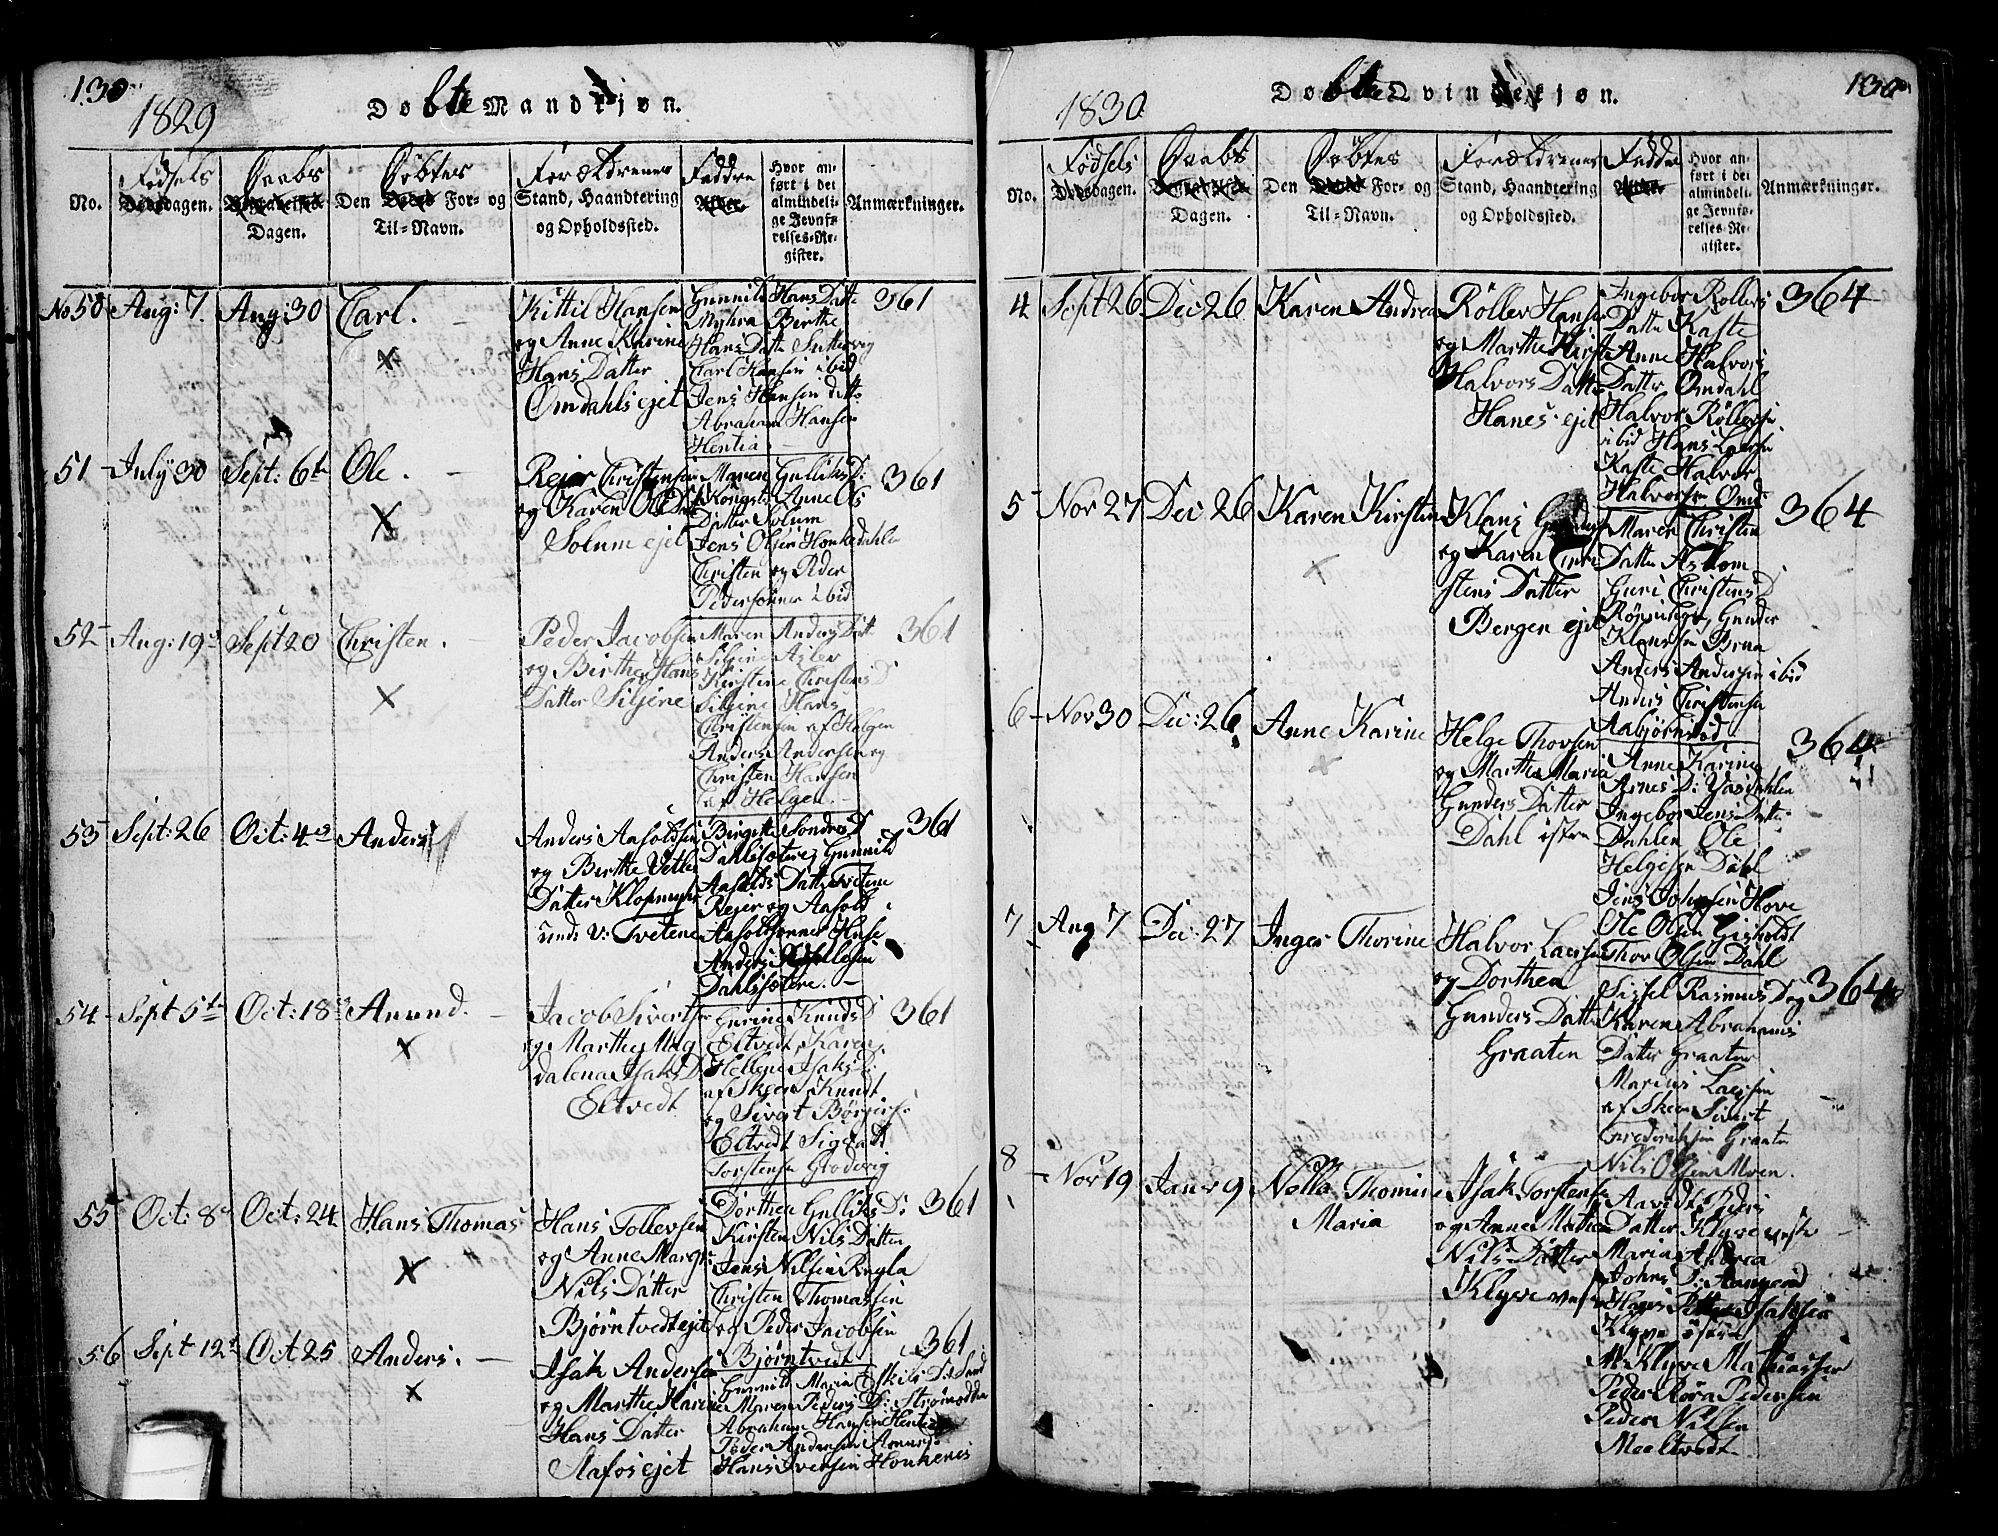 130
1829
Døbte Mandkjøn.
No.
Fødsels Dagen.
Daabs Dagen.
Den Døbtes For- og Til-Navn.
Forældrenes Stand, Haandtering og Opholdssted.
Faddre
Hvor anført i det almindelige Jevnførelses-Register.
Anmærkninger.
No 50 Aug: 7. Aug: 30 Carl. 361
Kittil Hansen
og Anne Karine
Hans Datter
Omdahls ejet
Gunnild Hans Datte
Myhra Birthe
Hans Datte
Carl Hansen ibid
Jens Hansen ditto
Abraham Hansen
Hentia
51 July 30 Sept: 6te Ole. 361
Rejer Christensen
og Karen Ols Datt
Solum ejet
Maren Gulliks D:
Kongst: Anne Ols
Datter Solum
Jens Olsen Honkedahlen
Christen og Peder
Pedersønner ibid
52 Aug: 19 Sept 20 Christen. 361
Peder Jacobsen
og Birthe Hans
Datter Siljene
Maren Anders Datt
Siljene Asler
Kirstine Christens D
Siljene Hans
Christensen af Helgen
Anders Andersen og
Christen Hansen
af Helgen.
53 Sept: 26 Oct: 4 Anders 361
Anders Aasoldsen
og Birthe Vetle
Datter Klopmyhr
und: v: Tvetene
Birgitte Sondres D
Dahlsætere, Gunnild
Aasolds Datte Tvetene
Rejer og Aasold
Aasoldsønner Huse
Anders
Dahlsætere.
54 Sept 5te Oct: 18 Amund. 361
Jacob Sivertse
og Marthe Mag
dalena Isaks D
Eltvedt
Gurine Knuds D
Eltvedt, Karen
Hellene Isaks D:
af Skeen, Knudt
og Sivert Børjese
Eltvedt Sigvadt
Torstensen Grodervig
55 Oct: 8 Oct: 24 Hans Thomas 361
Hans Tollevsen
og Anne Margr:
Nils Datter
Bjørntvedt ejet
Dorthea Gulliks D:
Kirsten Nils Datter
Jens Nilsen Rugla
Christen Thomassen
og Peder Jacobsen
Bjørntvedt
56 Sept 12t Oct 25 Anders. 361
Isak Andersen
og Marthe Karine
Hans Datter
Aafos ejet
Gunnild Maria Eskils D: Sand
Maren Peders D: Strømodden
Abraham Hansen Hentia
Peder Andersen
Hans Iversen Honkenes
130
1830
Døbte Qvindekjøn.
No.
Fødsels Dagen.
Daabs Dagen.
Den Døbtes For- og Til-Navn.
Forældrenes Stand, Haandtering og Opholdssted.
Faddre
Hvor anført i det almindelige Jevnførelses-Register.
Anmærkninger.
4 Sept 26 Dec: 26 Karen Andrea 364
Røller Hansen
og Marthe Kirst
Halvors Datte
Hanes ejet
Ingebor Rollers
Datte Kaste
Anne Halvors
Datter Omdahl
Halvor Røllersen
ibid Hans Larsen
Kaste Halvor
Halvorsen Omd:
5 Nov 27 Dec 26 Karen Kirstine 364
Klaus Gunders
og Karen Chri
stens Datter
Bergen ejet
Maren Christen
Datter Askom
Guri Christens D
Rønninge Gunder
Klausen Brua
Anders Andersen ibid
Anders Christensen
Aabjørnrød
6 Nov 30 Dec: 26 Anne Karine 364
Helge Thovsen
og Marthe Maria
Gunders Datter
Dahl istre
Anne Karine
Arnes D:
Ingebor Jens Datte
Dahlen Ole
Helgesen Dahl
Jens Johnsen Hove
Ole Olsen Gisholdt
Thor Olsen Dahl
7 Aug 7 Dec: 27 Inger Thorine 364
Halvor Larsen
og Dorthea
Gunders Datte
Graaten
Sissel Rasmus D og
Karen Abrahams
Datter Graaten
Marius Larssen
af Skeen Sivert
Frederiksen Graaten
Nils Olsen Moen.
8 Nov 19 Janr 9 Nella Thomine
Maria
Isak Torstense
og Anne Mathea
Nils Datter
Klyve vest
Peders
Datter Klyve vestr
Maria Andrea
Johns D:
Hans Isaksen
Klyve østre
Mathiassen
Peder Rora Pedersen
Peder Nilsen
Meeltvedt